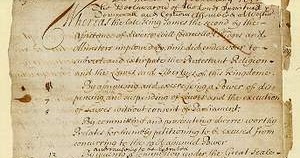 The Declaration of the Lords Spirituall
Temporall and Commons Assembled at
Whereas the late King James the second by the
Assistance of diverse evill Councellors Judges and
Ministers imployed by him did endeavour to
subvert and extirpate the Protestant Religion
and the Lawes and Liberties of this Kingdome.
By assuming and exercising a Power of dis
pensing with and suspending of Lawes and the execution
of Lawes without consent of Parliament
By committing and prosecuting diverse worthy
Prelates for humbly petitioning to be excused from
concurring to the said assumed Power
Commission under the Great Seale